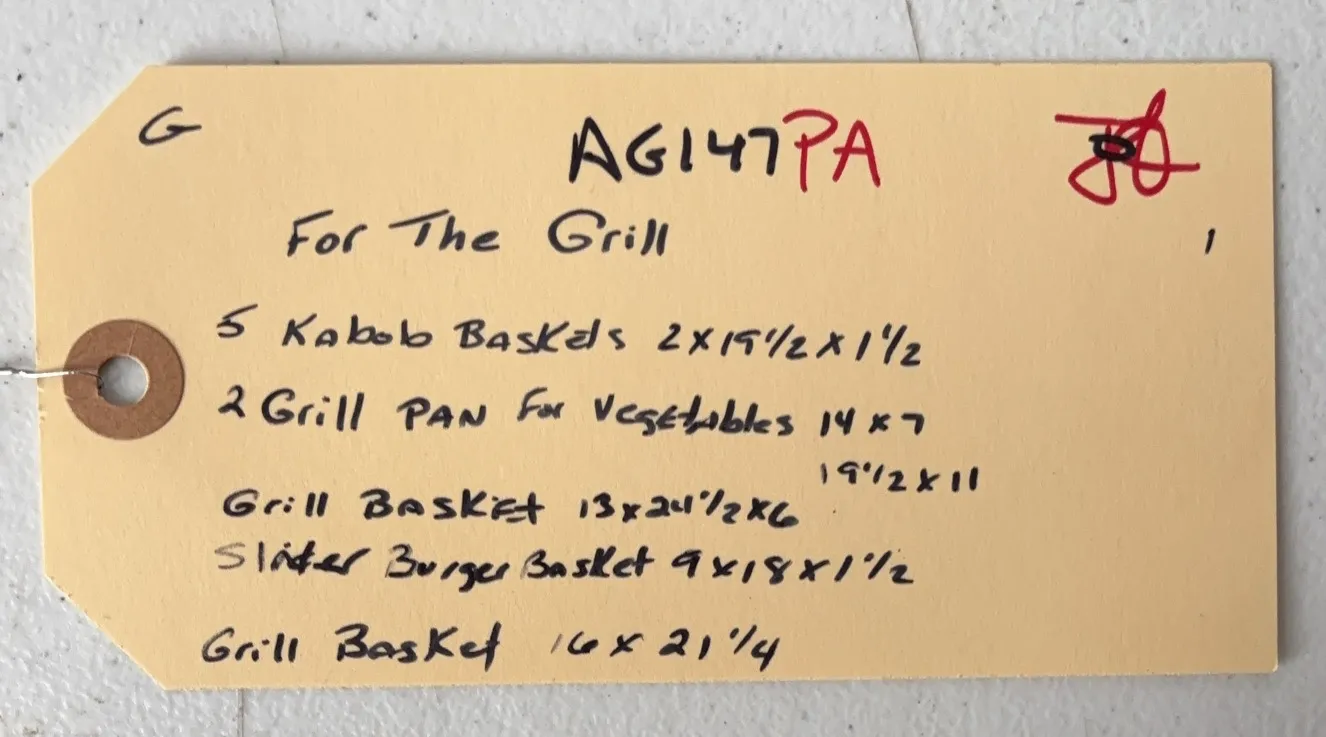 G
AG147PA
For The Grill
1
5 Kabob Baskets 2 x 19 1/2 x 1 1/2
2 Grill PAN For Vegetables 14 x 7
19 1/2 x 11
Grill Basket 13 x 24 1/2 x 6
Slider Burger Basket 9 x 18 x 1 1/2
Grill Basket 16 x 21 1/4